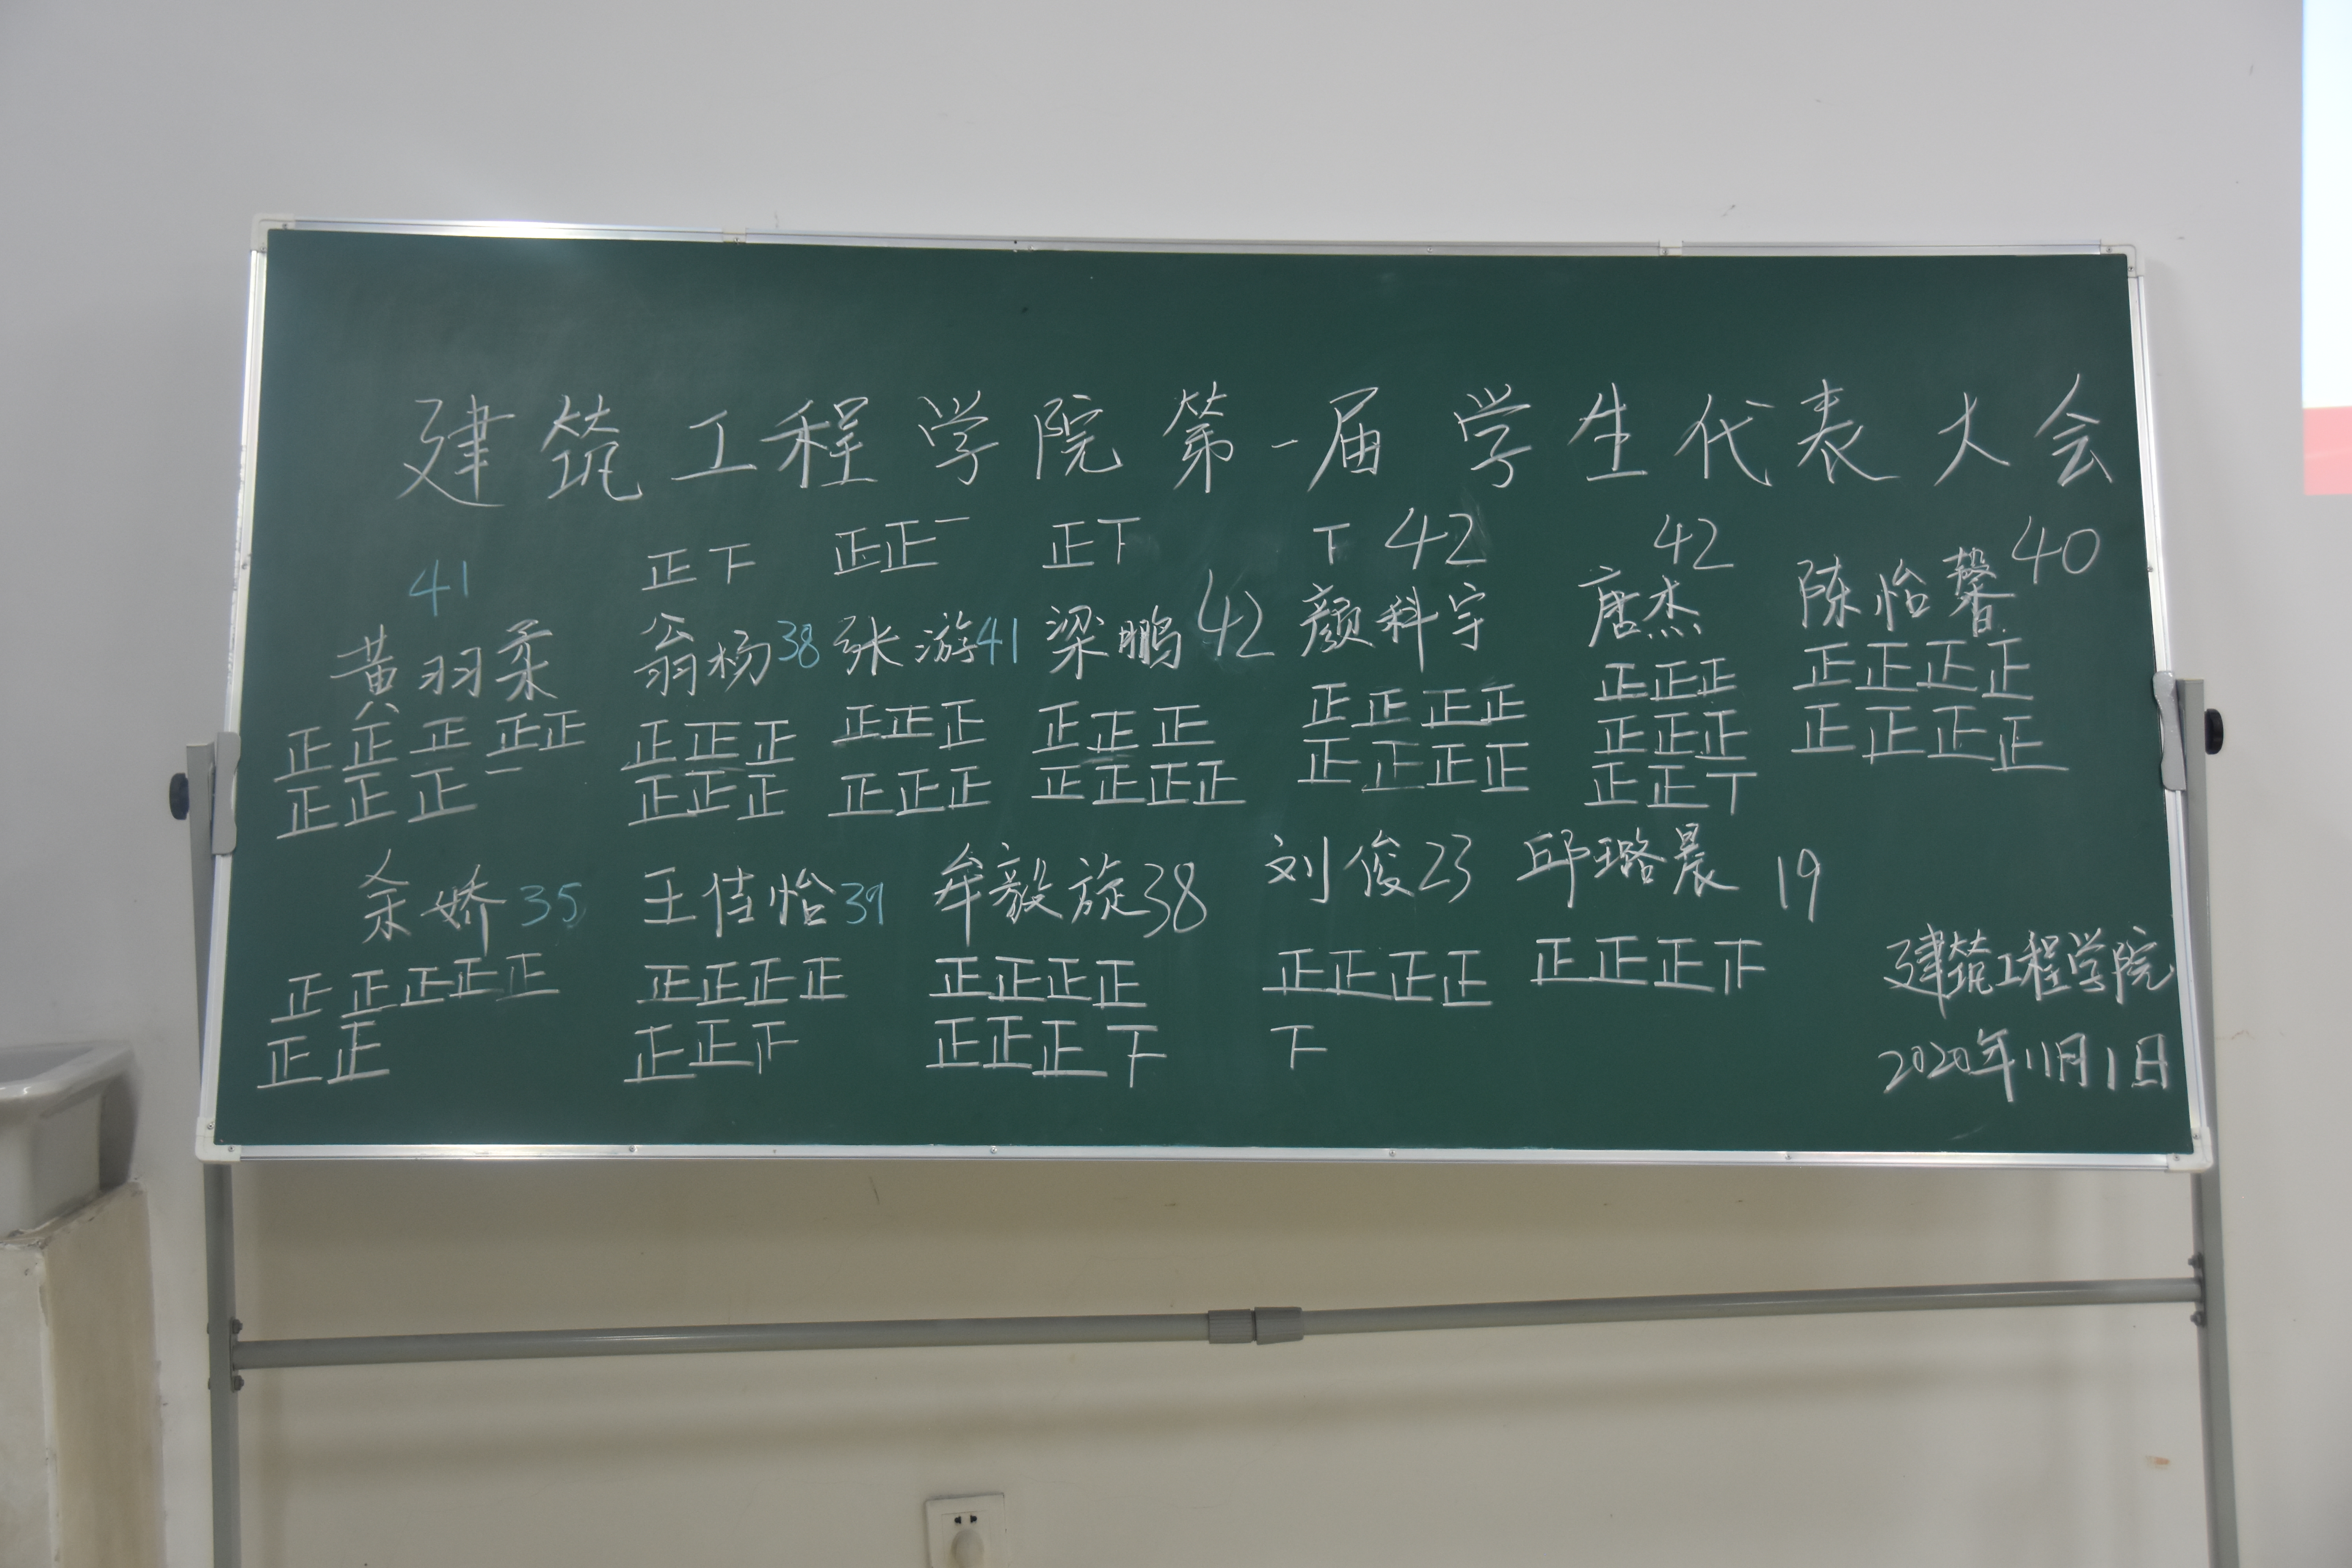 建筑工程学院第一届学生代表大会
正下 正正一 正下 下 42 42 40
41
黄羽柔 翁杨38 张游41 梁鹏42 颜科宇 唐杰 陈怡馨
正正正正正 正正正 正正正 正正正 正正正正 正正正 正正正正
正正正一 正正正 正正正 正正正正 正正正正 正正正 正正正正
正正丅
余娇35 王佳怡39 牟毅旋38 刘俊23 邱璐晨 19
正正正正正 正正正正 正正正正 正正正正 正正正正
正正 正正下 正正正下 下
建筑工程学院
2020年11月1日